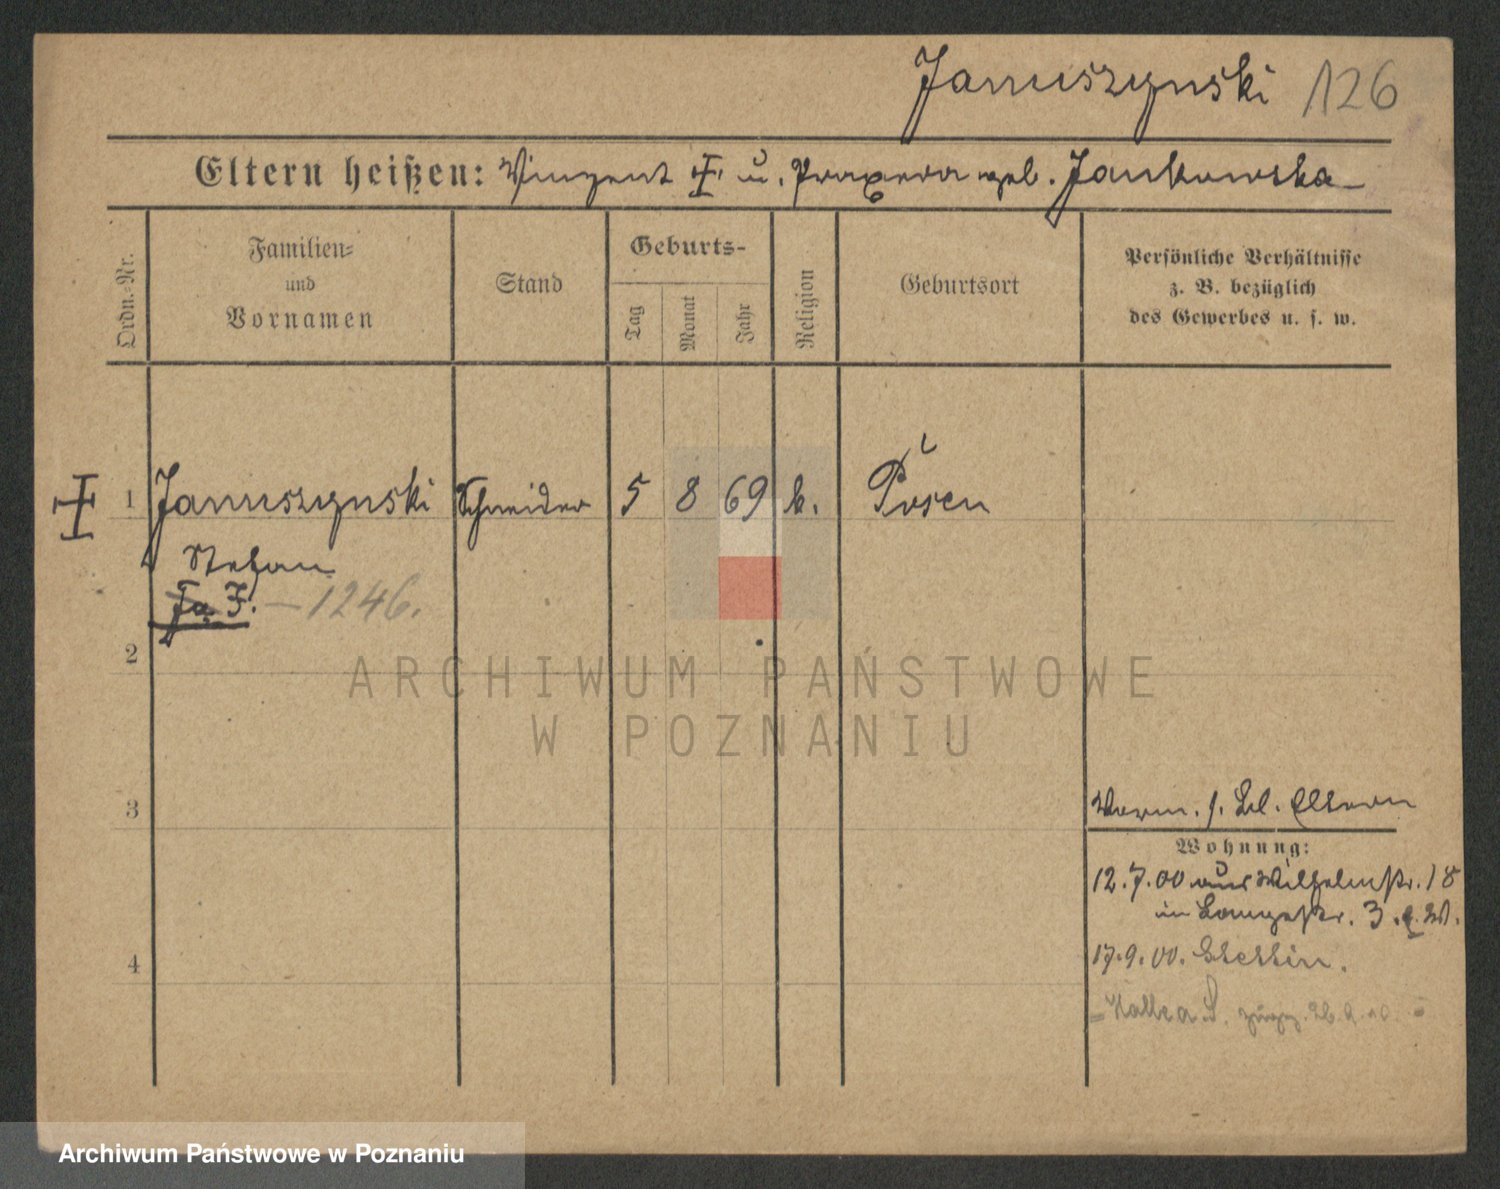 Januszynski 126
Eltern heißen: Vinzent u. Praxeda geb. Jankowska
Ordn.-Nr.
Familien-
und
Vornamen
Stand
Geburts-
Tag
Monat
Jahr
Religion
Geburtsort
Persönliche Verhältnisse
z. B. bezüglich
des Gewerbes u. s. w.
1 Januszynski Schneider 5 8 69 k. Posen
Stefan
Ja F. — 1246.
2
ARCHIWUM PAŃSTWOWE
W POZNANIU
3
Verm. s. Bl. Eltern
Wohnung:
12.7.00 aus Wilhelmstr. 18
in Langestr. 3.
4
17.9.00. Stettin.
Halle a S.
Archiwum Państwowe w Poznaniu